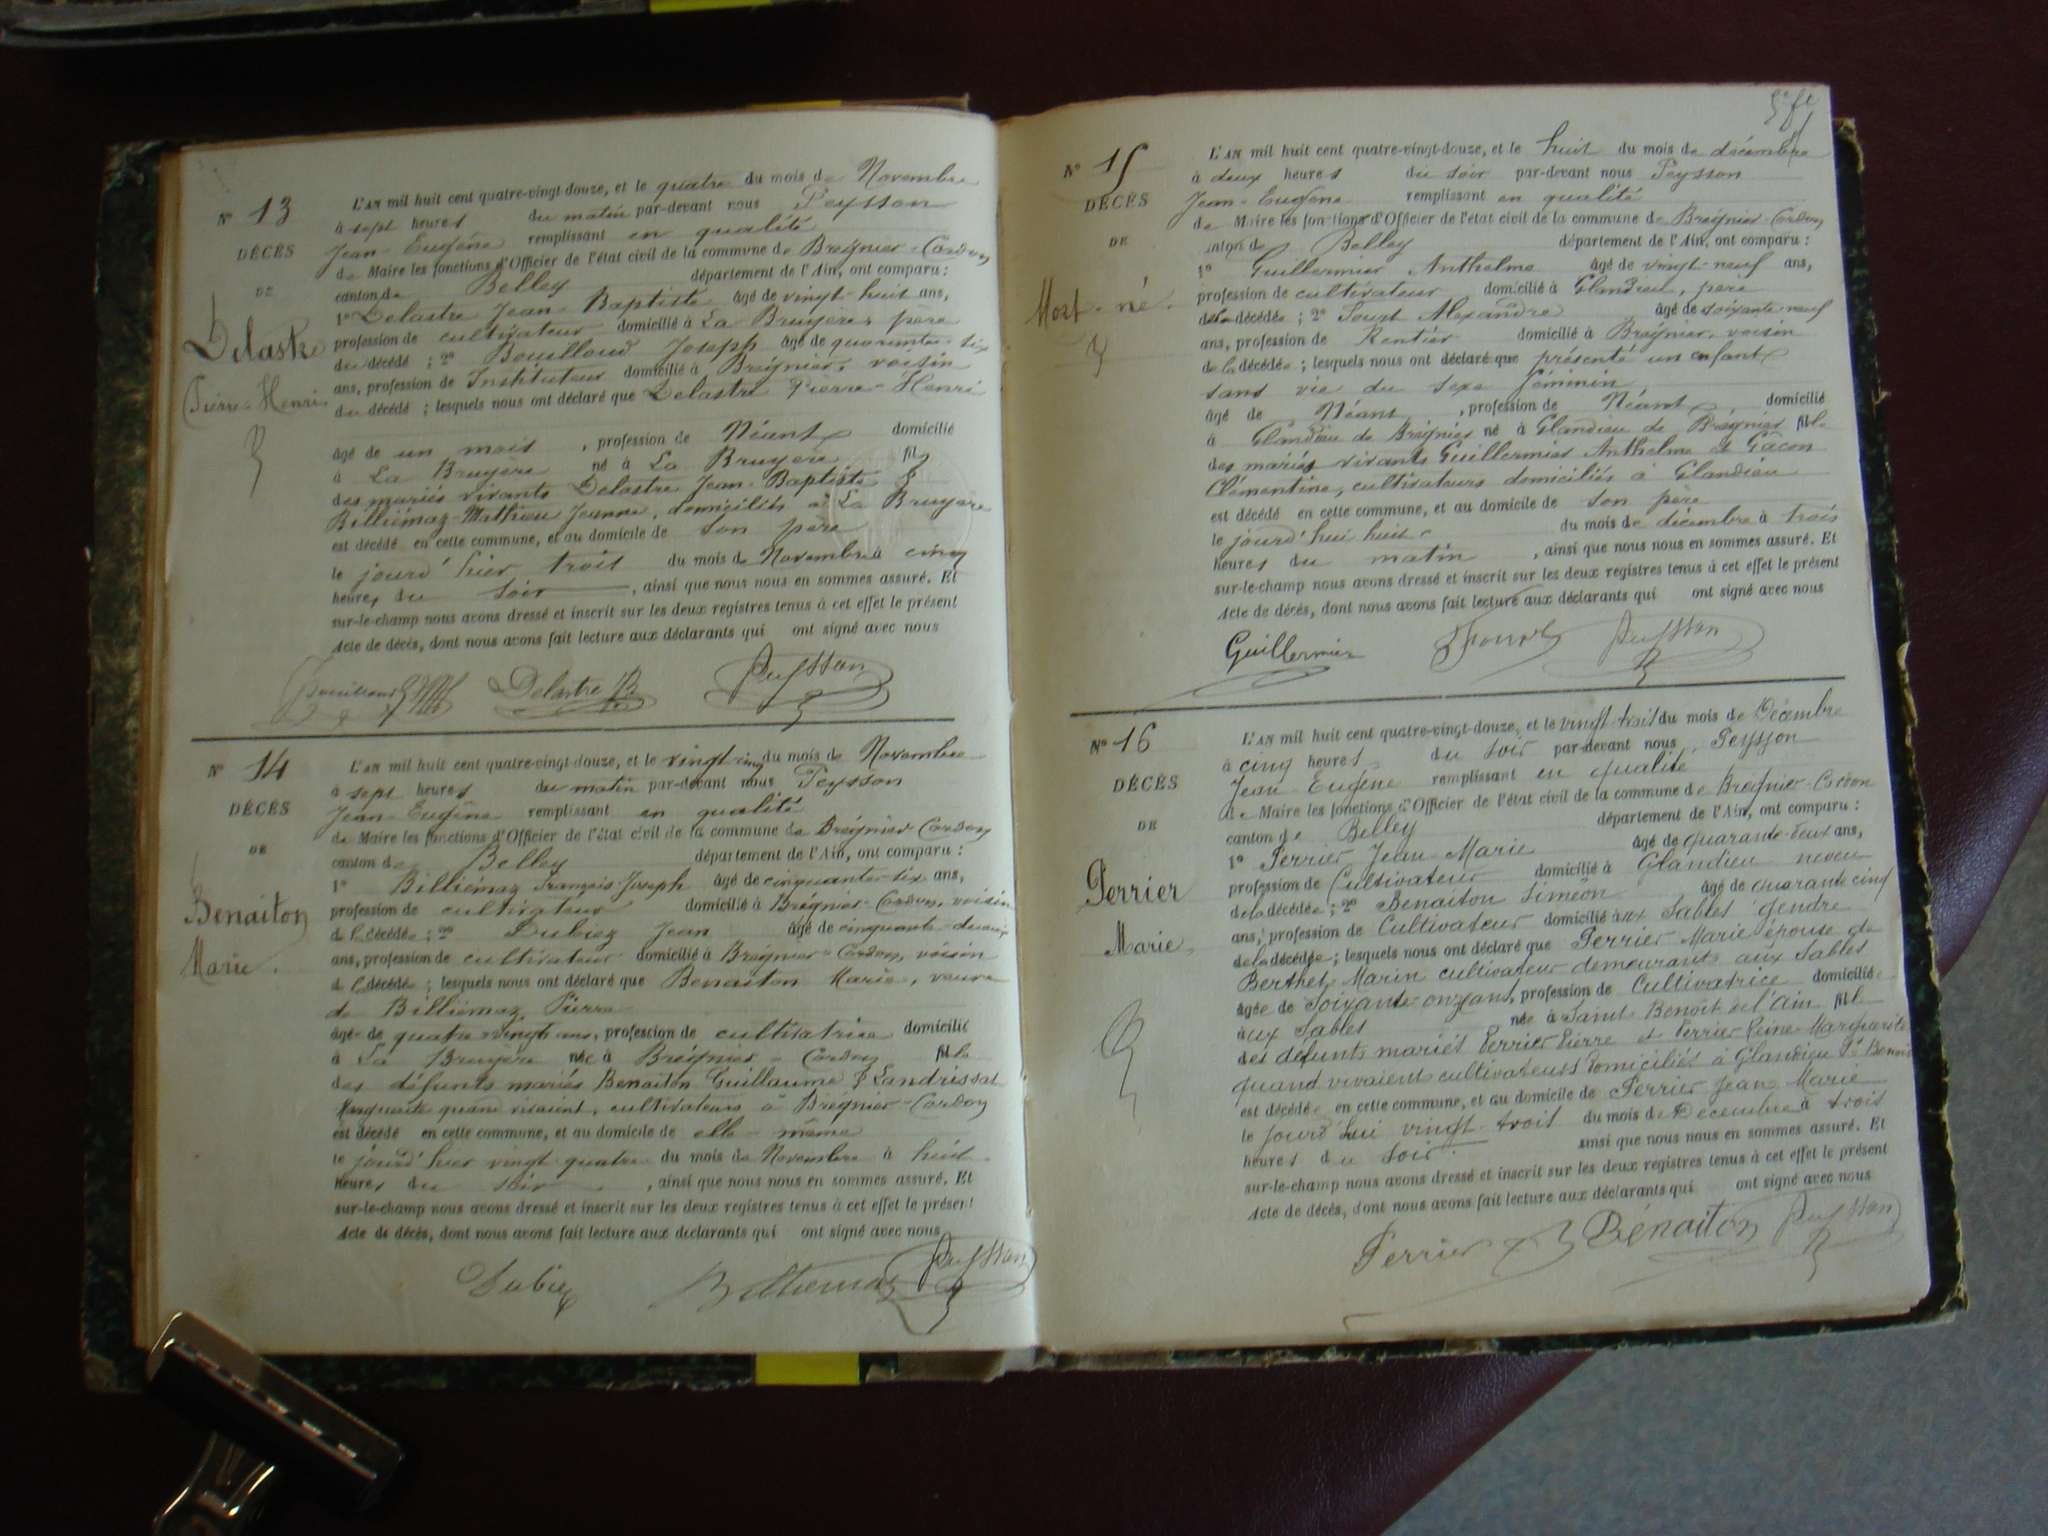 N° 13
DÉCÈS
DE
Delastre
Pierre-Henri
L'AN mil huit cent quatre-vingt-douze, et le quatre du mois de Novembre
à sept heures du matin par-devant nous Peysson
Jean-Eugène remplissant en qualité
de Maire les fonctions d'Officier de l'état civil de la commune de Brégnier-Cordon
canton de Belley département de l'Ain, ont comparu :
1° Delastre Jean-Baptiste âgé de vingt-huit ans,
profession de cultivateur domicilié à La Bruyère, père
du décédé ; 2° Bouilloud Joseph âgé de quarante-six
ans, profession de Instituteur domicilié à Brégnier, voisin
du décédé ; lesquels nous ont déclaré que Delastre Pierre-Henri
âgé de un mois , profession de Néant domicilié
à La Bruyère né à La Bruyère fils
des mariés vivants Delastre Jean-Baptiste &
Billiémaz-Mathieu Jeanne, domiciliés à La Bruyère
est décédé en cette commune, et au domicile de son père
le jourd'hier trois du mois de Novembre à cinq
heures du soir , ainsi que nous nous en sommes assuré. Et
sur-le-champ nous avons dressé et inscrit sur les deux registres tenus à cet effet le présent
Acte de décès, dont nous avons fait lecture aux déclarants qui ont signé avec nous
Bouilloud Delastre JB Peysson
N° 14
DÉCÈS
DE
Benaiton
Marie
L'AN mil huit cent quatre-vingt-douze, et le vingt-cinq du mois de Novembre
à sept heures du matin par-devant nous Peysson
Jean-Eugène remplissant en qualité
de Maire les fonctions d'Officier de l'état civil de la commune de Brégnier-Cordon
canton de Belley département de l'Ain, ont comparu :
1° Billiémaz François-Joseph âgé de cinquante-six ans,
profession de cultivateur domicilié à Brégnier-Cordon, voisin
de l décédée ; 2° Dubiez Jean âgé de cinquante-deux
ans, profession de cultivateur domicilié à Brégnier-Cordon, voisin
de l décédée ; lesquels nous ont déclaré que Benaiton Marie, veuve
de Billiémaz Pierre
âgée de quatre vingts ans, profession de cultivatrice domicilié
à La Bruyère née à Brégnier-Cordon fille
des défunts mariés Benaiton Guillaume & Landrissat
Marguerite quand vivaient, cultivateurs à Brégnier-Cordon
est décédé en cette commune, et au domicile de elle-même
le jourd'hier vingt quatre du mois de Novembre à huit
heures du soir , ainsi que nous nous en sommes assuré. Et
sur-le-champ nous avons dressé et inscrit sur les deux registres tenus à cet effet le présent
Acte de décès, dont nous avons fait lecture aux déclarants qui ont signé avec nous
Dubiez Billiemaz Peysson
N° 15
DÉCÈS
DE
Mort-né
L'AN mil huit cent quatre-vingt-douze, et le huit du mois de décembre
à deux heures du soir par-devant nous Peysson
Jean-Eugène remplissant en qualité
de Maire les fonctions d'Officier de l'état civil de la commune de Brégnier-Cordon
canton de Belley département de l'Ain, ont comparu :
1° Guillermier Anthelme âgé de vingt-neuf ans,
profession de cultivateur domicilié à Glandieu, père
de la décédée ; 2° Alexandre âgé de soixante-neuf
ans, profession de Rentier domicilié à Brégnier, voisin
de la décédée ; lesquels nous ont déclaré que présenté un enfant
sans vie du sexe féminin,
âgé de Néant , profession de Néant domicilié
à Glandieu de Brégnier né à Glandieu de Brégnier fille
des mariés vivants Guillermier Anthelme et Gacon
Clémentine, cultivateurs domiciliés à Glandieu
est décédé en cette commune, et au domicile de son père
le jourd'hui huit du mois de décembre à trois
heures du matin , ainsi que nous nous en sommes assuré. Et
sur-le-champ nous avons dressé et inscrit sur les deux registres tenus à cet effet le présent
Acte de décès, dont nous avons fait lecture aux déclarants qui ont signé avec nous
Guillermier Peysson
N° 16
DÉCÈS
DE
Perrier
Marie
L'AN mil huit cent quatre-vingt-douze, et le vingt-trois du mois de Décembre
à cinq heures du soir par-devant nous Peysson
Jean Eugène remplissant en qualité
de Maire les fonctions d'Officier de l'état civil de la commune de Brégnier-Cordon
canton de Belley département de l'Ain, ont comparu :
1° Perrier Jean-Marie âgé de quarante-deux ans,
profession de Cultivateur domicilié à Glandieu neveu
de la décédée ; 2° Benaiton Siméon âgé de quarante cinq
ans, profession de Cultivateur domicilié aux Sables gendre
de la décédée ; lesquels nous ont déclaré que Perrier Marie épouse de
Berthet Marin cultivateur demeurants aux Sables
âgée de Soixante onze ans, profession de Cultivatrice domiciliée
aux Sables née à Saint Benoit de l'Ain fille
des défunts mariés Perrier Pierre et Perrier Reine-Marguerite
quand vivaient cultivateurs domiciliés à Glandieu St Benoit
est décédée en cette commune, et au domicile de Perrier Jean Marie
le jourd'hui vingt-trois du mois de Décembre à trois
heures du soir ainsi que nous nous en sommes assuré. Et
sur-le-champ nous avons dressé et inscrit sur les deux registres tenus à cet effet le présent
Acte de décès, dont nous avons fait lecture aux déclarants qui ont signé avec nous
Perrier Bénaiton Peysson